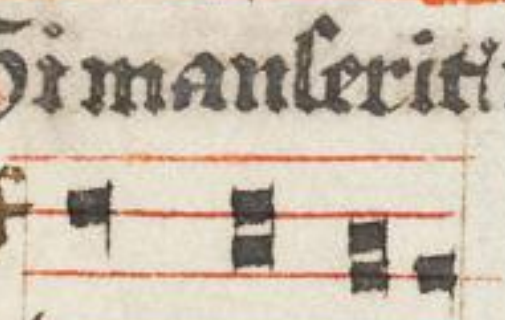 Si manſerit